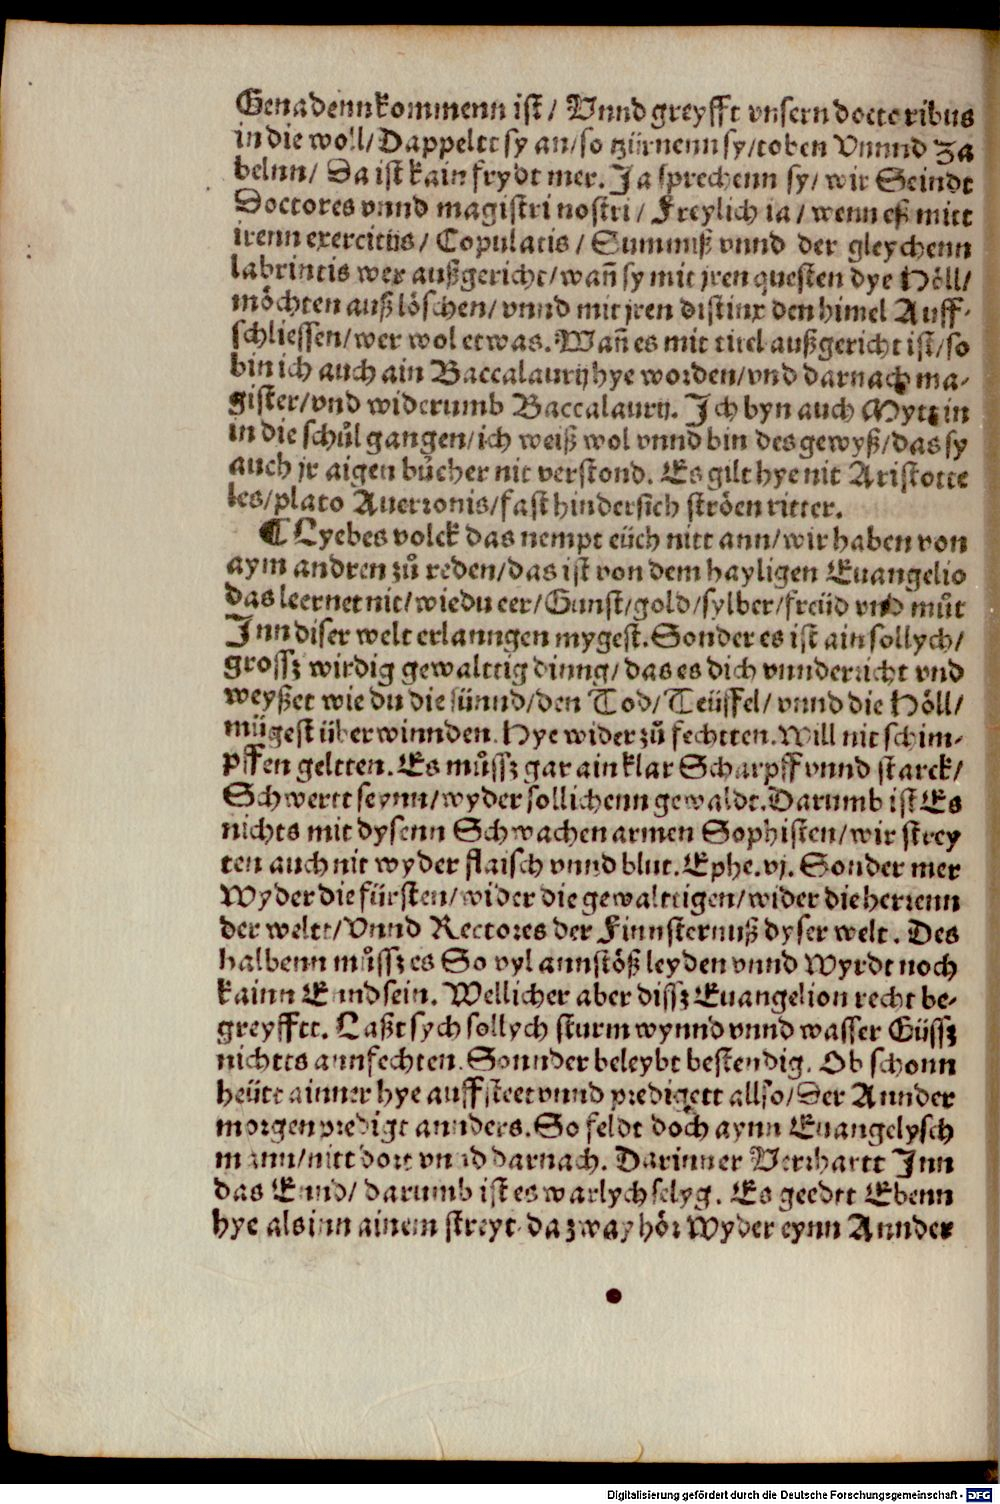 Genadennkommenn ist/ Vnnd greyfft vnsern doctoribus
in die woll/ Dappeltt sy an/ so zürnenn sy/ toben Vnnnd Za
belnn/ Da ist kain frydt mer. Ja sprechenn sy/ wir Seindt
Doctores vnnd magistri nostri/ Freylich ia/ wenn eß mitt
irenn exercitijs/ Copulatis/ Summiß vnnd der gleychenn
labrintis wer außgericht/ wañ sy mit jren questen dye Höll/
möchten auß löschen/ vnnd mit jren distinx den himel Auff-
schliessen/ wer wol etwas. Wañ es mit titel außgericht ist/ so
bin ich auch ain Baccalaurij hye worden/ vnd darnach ma-
gister/ vnd widerumb Baccalaurij. Ich byn auch Mytt in
in die schůl gangen/ ich weiß wol vnnd bin des gewyß/ das sy
auch jr aigen bůcher nit verstond. Es gilt hye nit Aristotte
les/ plato Auerronis/ fast hindersich ströen ritter.
¶ Lyebes volck das nempt eüch nitt ann/ wir haben von
aym andren zů reden/ das ist von dem hayligen Euangelio
das leernet nit/ wie du eer/ Gunst/ gold/ sylber/ freüd vnd můt
Inn diser welt erlanngen mygest. Sonder es ist ain sollych/
grossz wirdig gewalttig dinng/ das es dich vnnderricht vnd
weyßet wie du die sünnd/ den Tod/ Teüffel/ vnnd die Höll/
mügest überwinnden. Hye wider zů fechtten. Will nit schim-
pffen geltten. Es můssz gar ain klar Scharpff vnnd starck/
Schwertt seynn/ wyder sollichenn gewaldt. Darumb ist Es
nichts mit dysenn Schwachen armen Sophisten/ wir strey
ten auch nit wyder flaisch vnnd blut. Ephe. vj. Sonder mer
Wyder die fürsten/ wider die gewalttigen/ wider die herrenn
der weltt/ Vnnd Rectores der Finnsternuß dyser welt. Des
halbenn můssz es So vyl annstöß leyden vnnd Wyrdt noch
kainn Ennd sein. Wellicher aber dissz Euangelion recht be-
greyfftt. Laßt sych sollych sturm wynnd vnnd wasser Güssz
nichtts annfechten. Sonnder beleybt bestendig. Ob schonn
heütt ainner hye auffsteet vnnd predigett allso/ Der Annder
morgen predigt annders. So feldt doch aynn Euangelysch
mann/ nitt dort vnnd darnach. Darinner Verrhartt Inn
das Ennd/ darumb ist es warlych selyg. Es geedtt Ebenn
hye als inn ainem streyt da zway hör Wyder eynn Annder
Digitalisierung gefördert durch die Deutsche Forschungsgemeinschaft - DFG